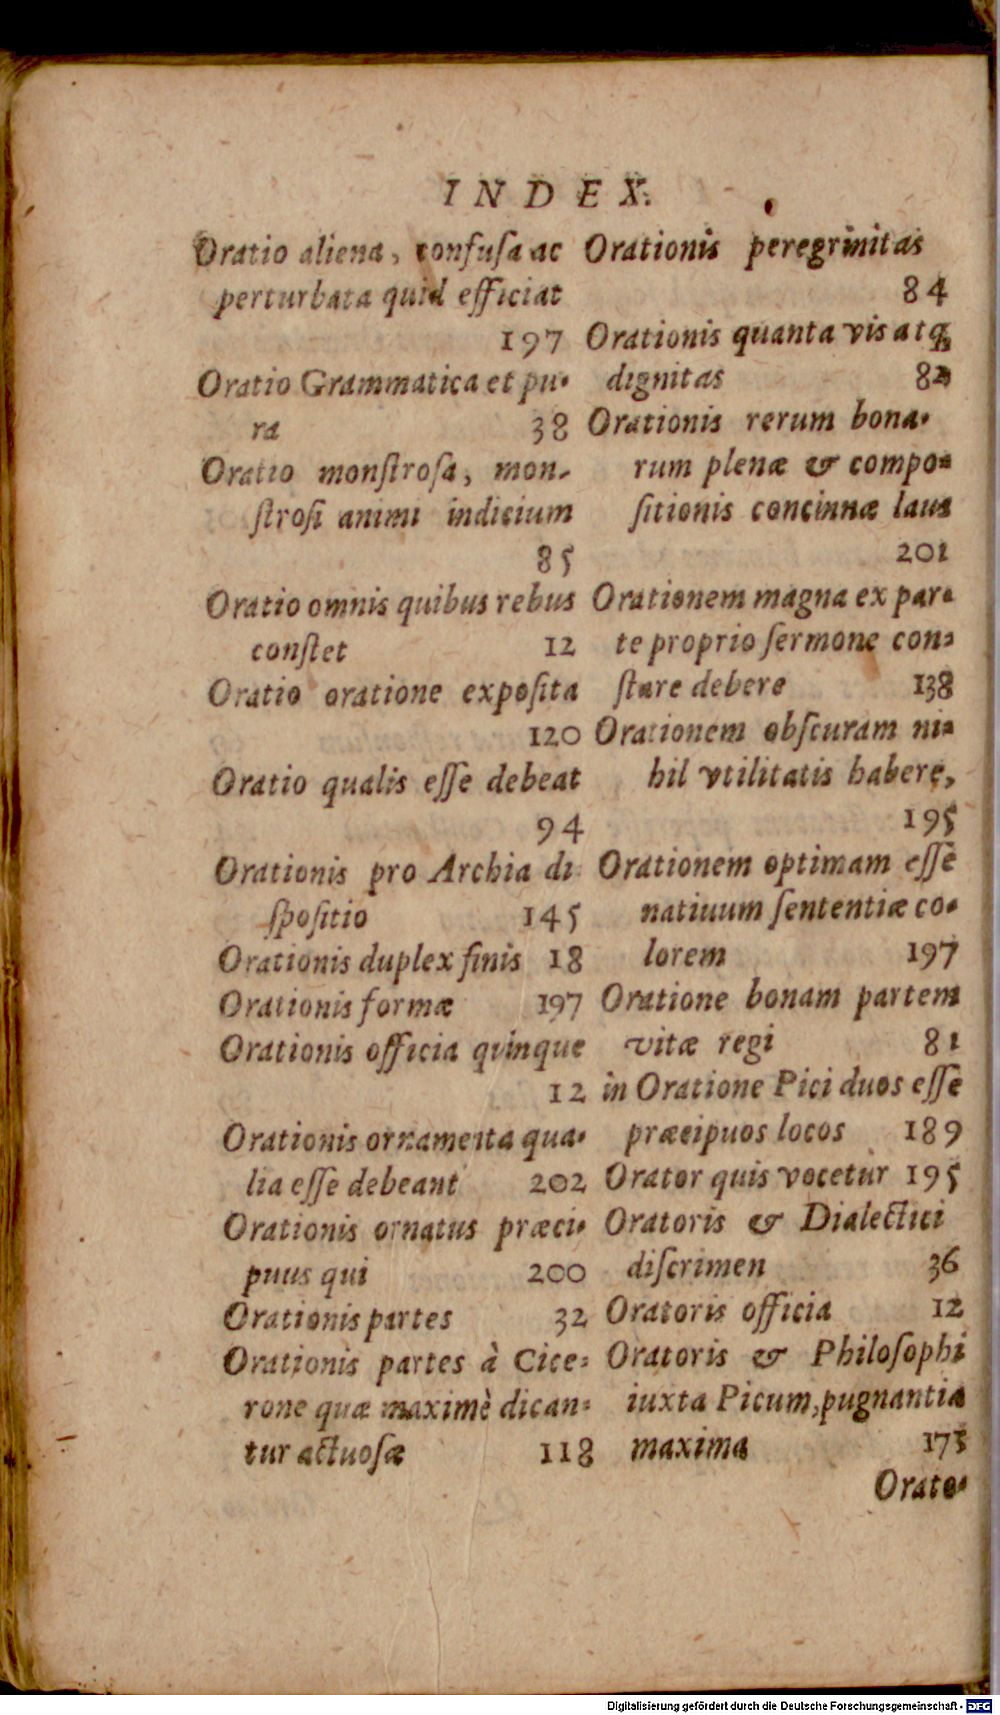 INDEX.
Oratio aliena, confusa ac
perturbata quid efficiat
197
Oratio Grammatica et pu-
ra 38
Oratio monſtroſa, mon-
ſtroſi animi indicium
85
Oratio omnis quibus rebus
conſtet 12
Oratio oratione expoſita
120
Oratio qualis eſſe debeat
94
Orationis pro Archia di
ſpoſitio 145
Orationis duplex finis 18
Orationis formæ 197
Orationis officia quinque
12
Orationis ornamenta qua-
lia eſſe debeant 202
Orationis ornatus præci-
puus qui 200
Orationis partes 32
Orationis partes à Cice-
rone quæ maximè dican-
tur actuoſæ 118
Orationis peregrinitas
84
Orationis quanta vis atq;
dignitas 82
Orationis rerum bona-
rum plenæ & compo-
ſitionis concinnæ laus
201
Orationem magna ex par-
te proprio ſermone con-
ſtare debere 138
Orationem obſcuram ni-
hil vtilitatis habere,
195
Orationem optimam eſſe
natiuum ſententiæ co-
lorem 197
Oratione bonam partem
vitæ regi 81
in Oratione Pici duos eſſe
præcipuos locos 189
Orator quis vocetur 195
Oratoris & Dialectici
diſcrimen 36
Oratoris officia 12
Oratoris & Philoſophi
iuxta Picum, pugnantia
maxima 175
Orato-
Digitalisierung gefördert durch die Deutsche Forschungsgemeinschaft - DFG